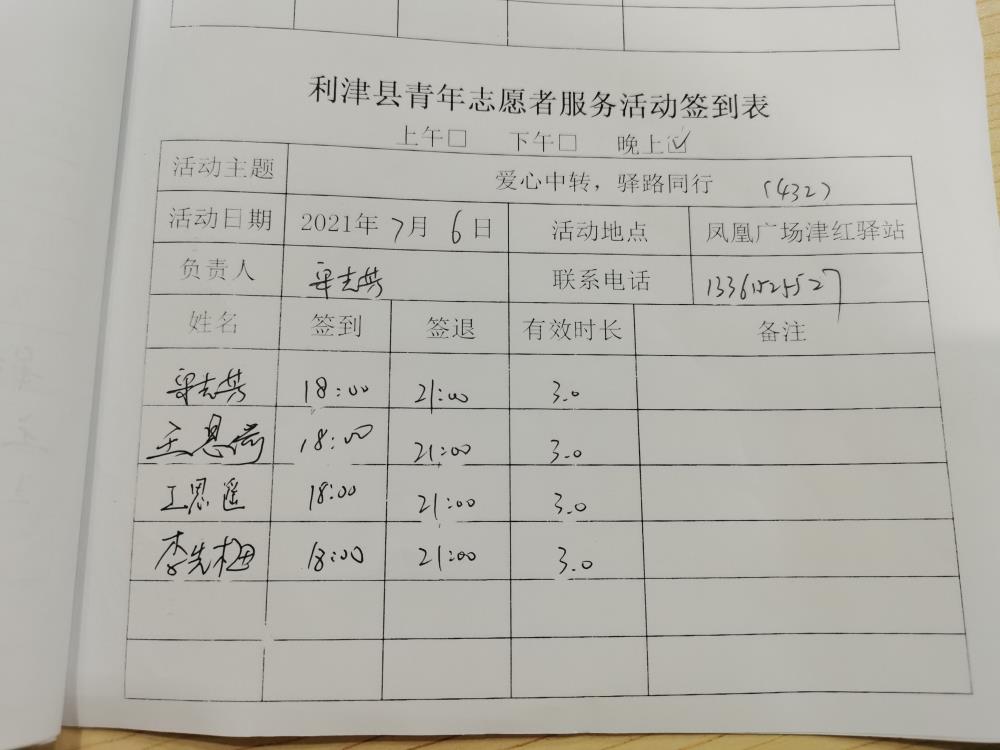 利津县青年志愿者服务活动签到表
上午□ 下午□ 晚上☑
活动主题 爱心中转，驿路同行 (432)
活动日期 2021年7月6日 活动地点 凤凰广场津红驿站
负责人 联系电话
姓名 签到 签退 有效时长 备注
18:00 21:00 3.0
王恩 18:00 21:00 3.0
王恩 18:00 21:00 3.0
李先梅 18:00 21:00 3.0